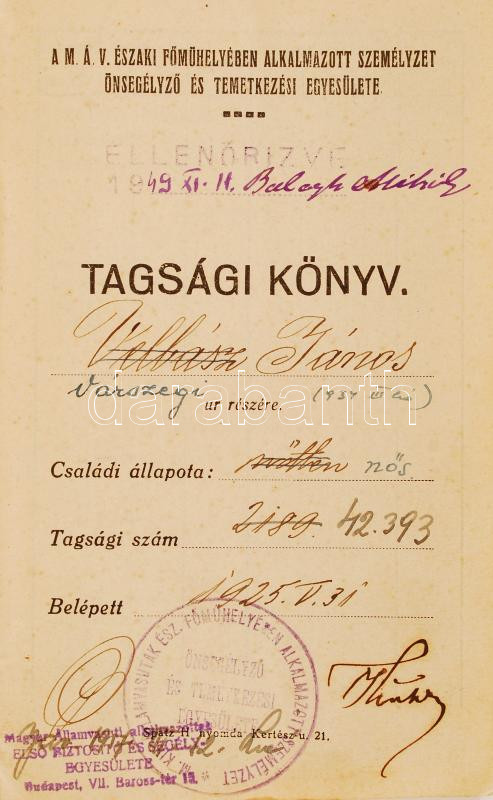 A M. Á. V. ÉSZAKI FŐMŰHELYÉBEN ALKALMAZOTT SZEMÉLYZET
ÖNSEGÉLYZŐ ÉS TEMETKEZÉSI EGYESÜLETE
ELLENŐRIZVE
1949 XI. 11. Balogh Mihály
TAGSÁGI KÖNYV.
János
Várszegi úr részére.
darabanth
Családi állapota: nőtlen nős.
Tagsági szám 2189. 42.393
Belépett 1925. V. 31
KIR. ÁLLAMVASUTAK ÉSZ. FŐMŰHELYÉBEN ALKALMAZOTT SZEMÉLYZET
ÖNSEGÉLYZŐ
ÉS TEMETKEZÉSI
EGYESÜLETE
Spätz H. nyomda Kertész-u. 21.
Magyar Államvasúti alkalmazottak
ELSŐ BIZTOSÍTÓ ÉS SEGÉLY-
EGYESÜLETE
Budapest, VII. Baross-tér 13.